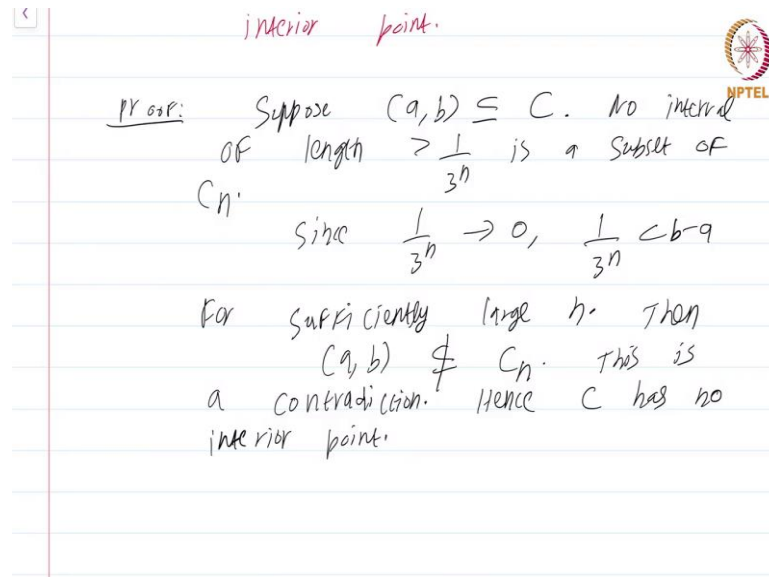 interior point.
NPTEL
Proof: Suppose (a, b) ⊆ C. No interval
of length > 1/3^n is a subset of
C_n.
Since 1/3^n → 0, 1/3^n < b-a
For sufficiently large n. Then
(a, b) ⊄ C_n. This is
a contradiction. Hence C has no
interior point.